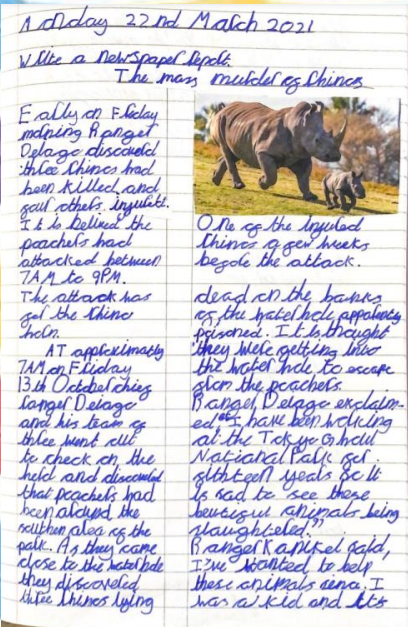 Monday 22nd March 2021
Write a newspaper report.
The mass murder of rhinos
Early on Friday
morning Ranger
Delage discoverd
three rhinos had
been killed and
four others injured.
It is belived the
poachers had
attacked between
7AM to 9PM.
The attack was
for the rhino
horn.
AT approximatly
7AM on Friday
13th October chief
ranger Delage
and his team of
three went out
to check on the
herd and discoverd
that poachers had
been around the
southen area of the
park. As they came
close to the waterhole
they discovered
three rhinos lying
One of the injured
rhinos a few weeks
before the attack.
dead on the banks
of the waterhole apparently
poisoned. It is thought
they were getting into
the water hole to escape
from the poachers.
Ranger Delage exclaim-
ed "I have been working
at the
National Park for
years so it
is sad to see these
beutiful animals being
slaughtered."
Ranger said,
I've wanted to help
these animals I
was a kid and its